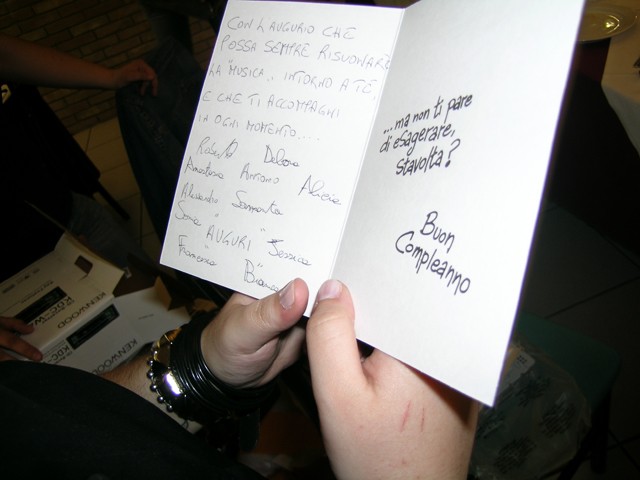 CON L'AUGURIO CHE
POSSA SEMPRE RISUONARE
LA "MUSICA" INTORNO A TE
E CHE TI ACCOMPAGNI
IN OGNI MOMENTO....
Roberto Debora
Anastasia Antonio Alicia
Alessandro Samantha
Sara "AUGURI" Jessica
Francesca Bianca
...ma non ti pare
di esagerare,
stavolta?
Buon
Compleanno
KENWOOD
KENWOOD